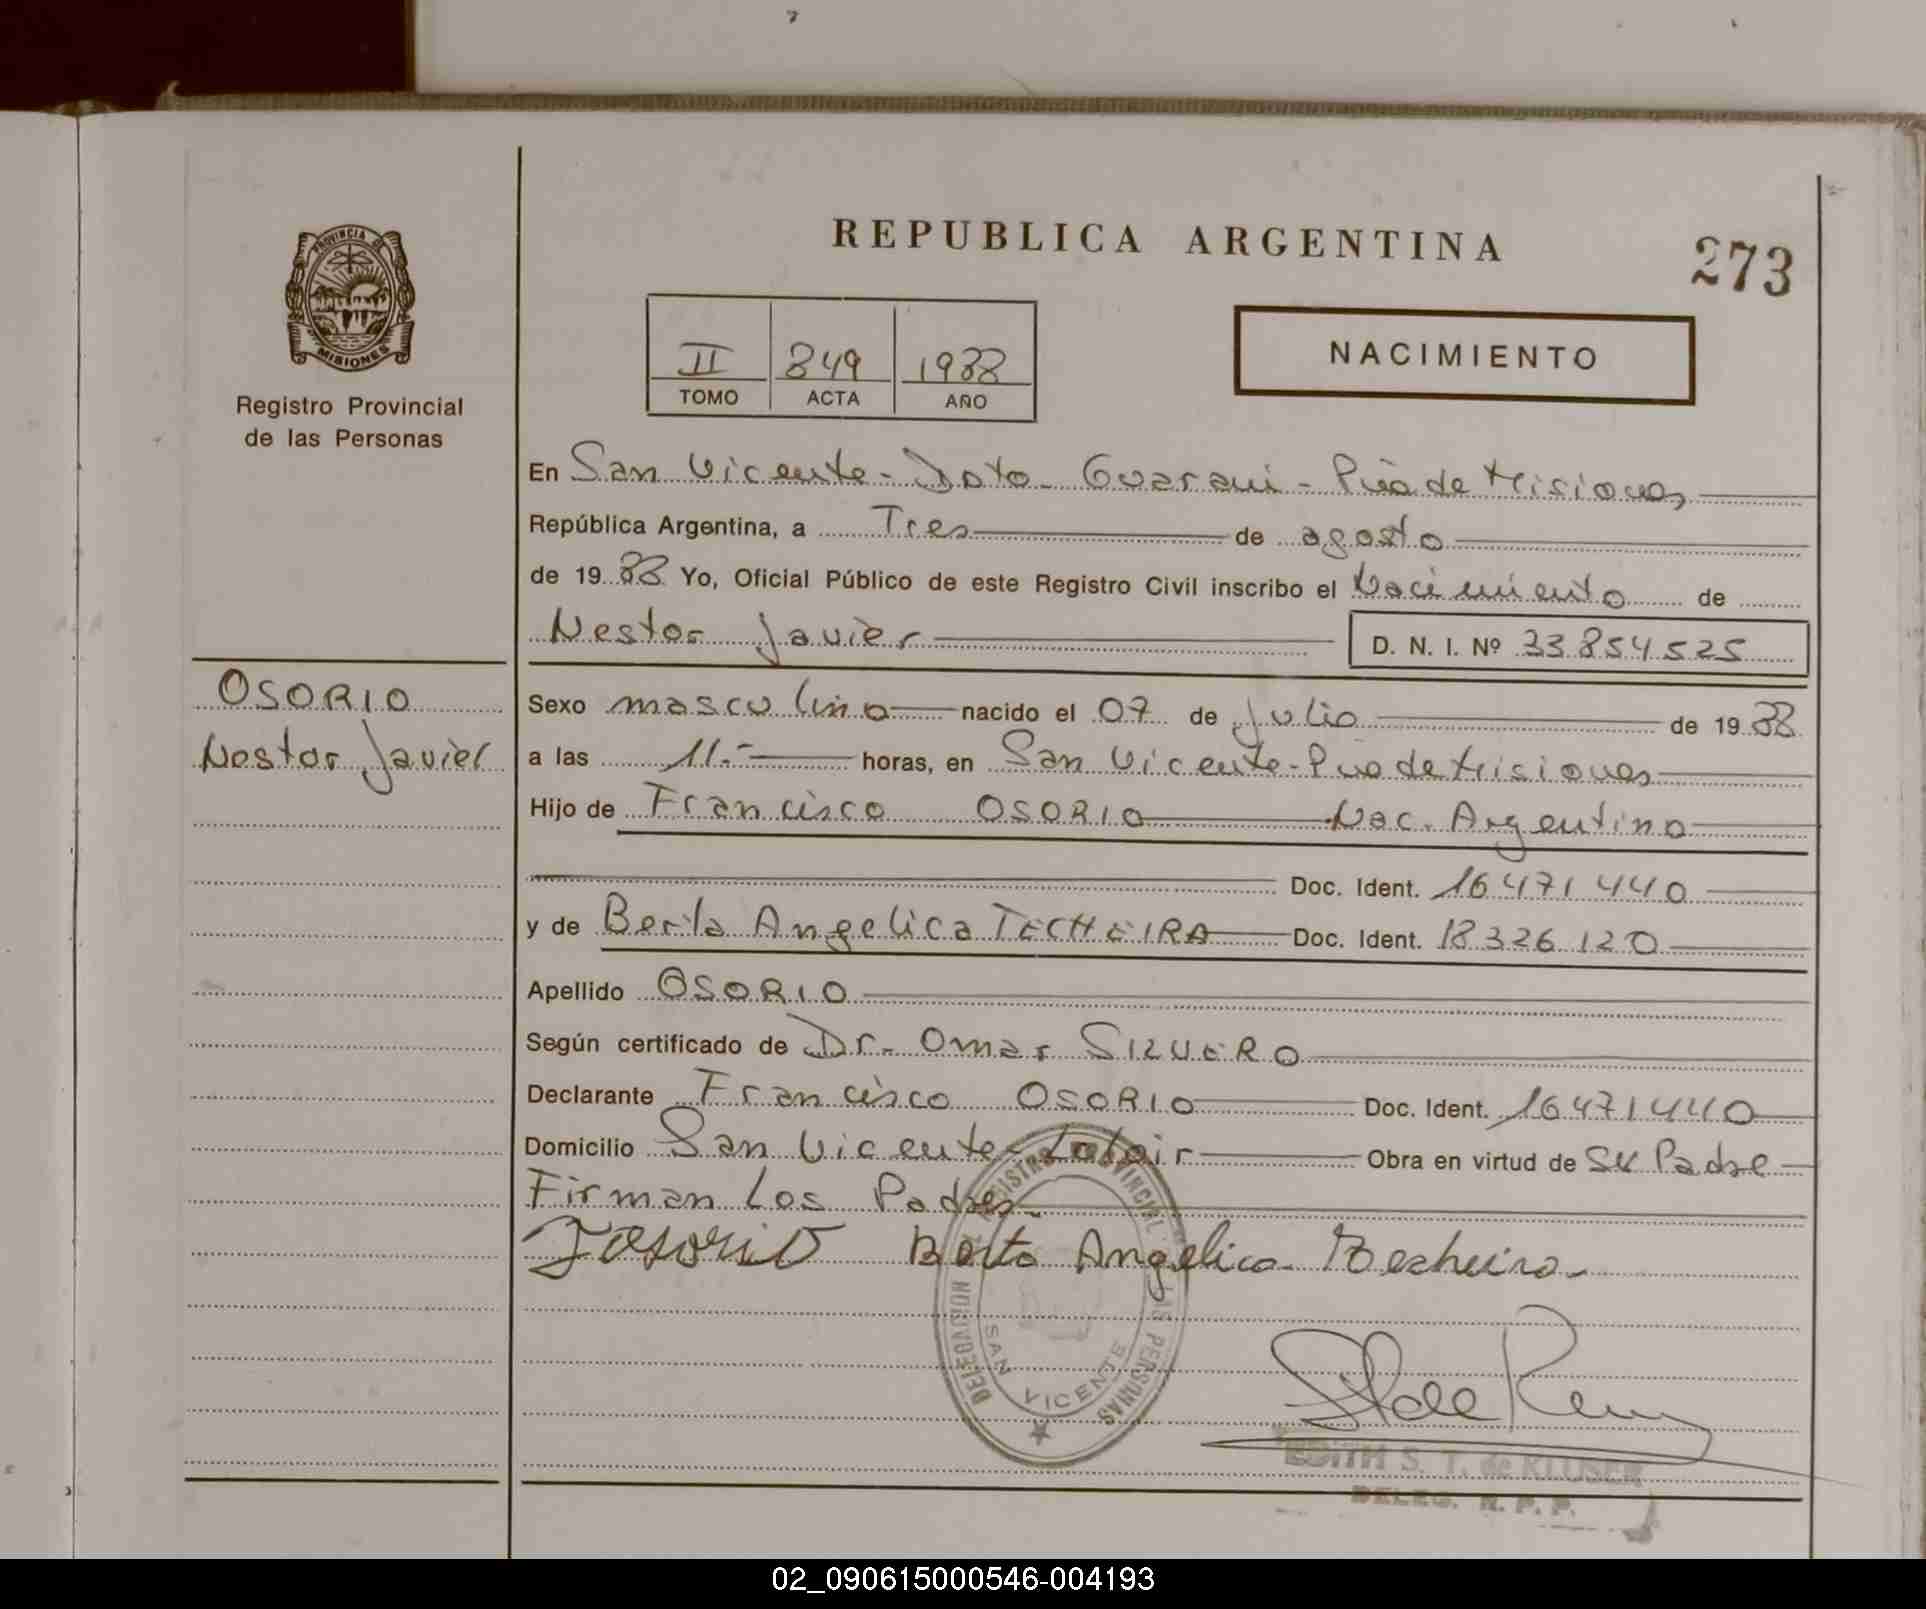 REPUBLICA ARGENTINA
273
PROVINCIA DE
MISIONES
Registro Provincial
de las Personas
II 849 1988
TOMO ACTA AÑO
NACIMIENTO
En San Vicente - Dpto. Guarani - Pcia de Misiones,
República Argentina, a Tres de agosto
de 1988 Yo, Oficial Público de este Registro Civil inscribo el Nacimiento de
Nestor Javier D. N. I. Nº 33854525
OSORIO
Nestor Javier
Sexo masculino nacido el 07 de Julio de 1988
a las 11.- horas, en San Vicente - Pcia de Misiones
Hijo de Francisco OSORIO Nac. Argentino
Doc. Ident. 16471440
y de Berta Angelica TECHEIRA Doc. Ident. 18326120
Apellido OSORIO
Según certificado de Dr. Omar
Declarante Francisco OSORIO Doc. Ident. 16471440
Domicilio San Vicente Obra en virtud de su Padre
Firman Los Padres.
Fosorio Berta Angelica Techeira
DELEGACION REGISTRO PROVINCIAL LAS PERSONAS
SAN VICENTE
EDITH S. T. de KLUSER
DELEG. R. P. P.
02_090615000546-004193